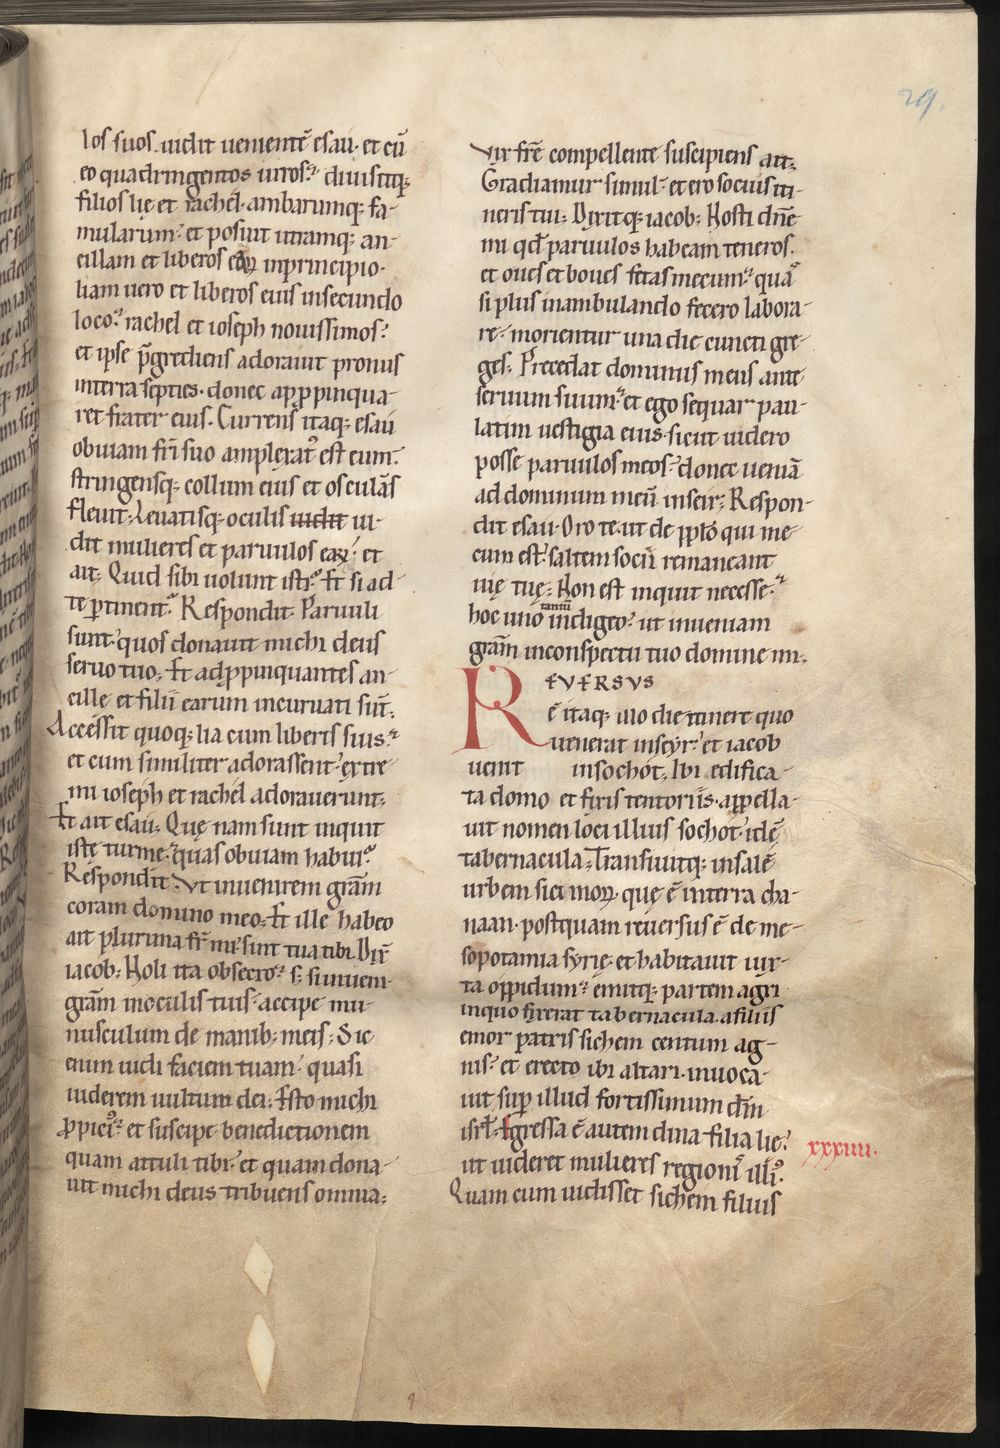 29.
los suos. uidit uenientē esau. et cū
eo quadringentos uiros. diuisitq;
filios lię et rachél. ambarumq; fa-
mularum. et posuit utramq; an-
cillam et liberos eaꝝ inprincipio.
liam uero et liberos eius insecundo
loco. rachel et ioseph nouissimos.
et ipse ꝓgrediens adorauit pronus
interra septies. donec apꝓpinqua-
ret frater eius. Currens itaq; esau
obuiam fr̄i suo amplexatꝰ est eum.
stringensq; collum eius et osculās
fleuit. Leuatisq; oculis uidit ui-
dit mulieres et paruulos eaꝝ. et
ait; Quid sibi uolunt isti. Et si ad
te ꝑtinent. Respondit. Paruuli
sunt. quos donauit michi deus
seruo tuo; Et adꝓpinquantes an-
cille et filii earum incuruati sūt;
Accessit quoq; lia cum liberis suis.
et cum similiter adorassent. extre-
mi ioseph et rachél adorauerunt;
Et ait esau; Quę nam sunt inquit
istę turme. quas obuiam habui.
Respondit. Vt inuenirem grām
coram domino meo; Et ille habeo
ait plurima fr̄ mi. sint tua tibi. Dix̄
iacob; Noli ita obsecro. s; si inueni
grām inoculis tuis. accipe mu-
nusculum de manib; meis; Sic
enim uidi faciem tuam. quasi
uiderem uultum dei; Esto michi
ꝓpiciꝰ. et suscipe benedictionem
quam attuli tibi. et quam dona-
uit michi deus tribuens omnia;
Vix fr̄e compellente suscipiens ait;
Gradiamur simul. et ero socius iti-
neris tui; Dixitq; iacob; Nosti dn̄e
mi qd̄ paruulos habeam teneros.
et oues et boues fetas mecum. quā
si plus inambulando fecero labora-
re. morientur una die cuncti gre-
ges; Precedat dominus meus ante
seruum suum. et ego sequar pau-
latim uestigia eius. sicut uidero
posse paruulos meos. donec ueniā
ad dominum meū inseir; Respon-
dit esau. Oro te. ut de ꝓplo qui me-
cum est. saltem socii remaneant
uię tuę; Non est inquit necesse.
hoc uno tantū indigeo. ut inueniam
grām inconspectu tuo domine mi;
REVERSUS
ē itaq; illo die itinere quo
uenerat inseyr. et iacob
uenit insochót; Ibi edifica-
ta domo et fixis tentoriis. appella-
uit nomen loci illius sochot. id ē
tabernacula; Transiuitq; insalē
urbem sicimoꝝ. quę ē interra cha-
naan. postquam reuersus ē de me-
sopotamia syrię. et habitauit iux-
ta oppidum. emitq; partem agri
inquo fixerat tabernacula. afiliis
emor patris sichem centum ag-
nis. et erecto ibi altari. inuoca-
uit suꝑ illud fortissimum dm̄
isrł; Egressa ē autem dina filia lię. xxxiiii.
ut uideret mulieres regionis illiꝰ.
Quam cum uidisset sichem filius